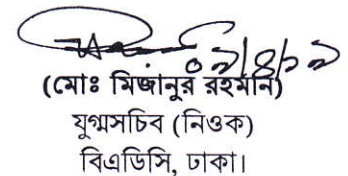 ০৯/৪/১৯
(মোঃ মিজানুর রহমান)
যুগ্মসচিব (নিওক)
বিএডিসি, ঢাকা।